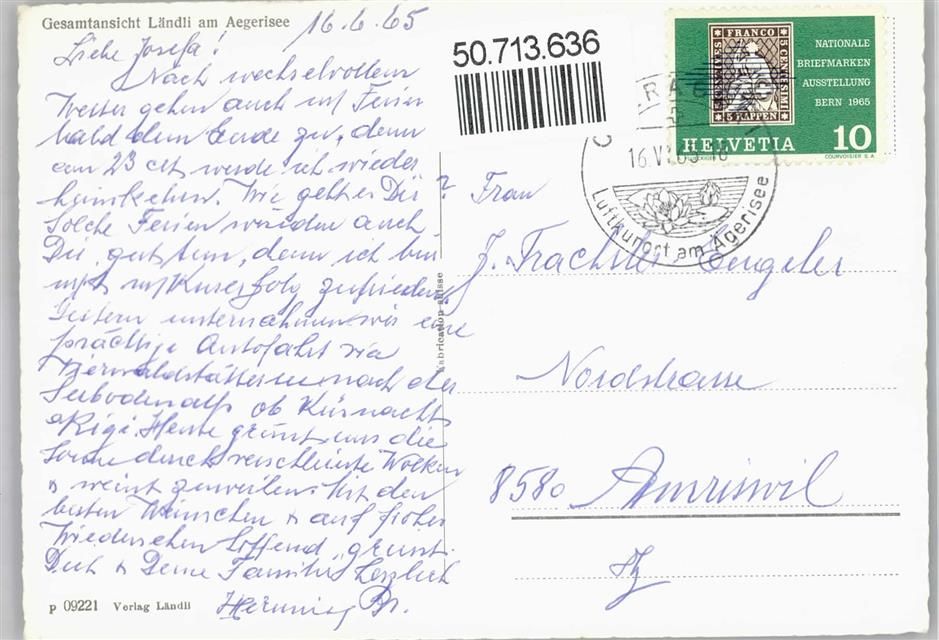 Gesamtansicht Ländli am Aegerisee
16.6.65
Liebe Josefa!
Nach wechselvollem
Wetter gehen auch m/ Ferien
bald dem Ende zu, denn
am 23 ct werde ich wieder
heimkehren. Wie geht es Dir?
Solche Ferien würden auch
Dir gut tun, denn ich bin
mit m/Kurerfolg zufrieden.
Gestern unternahmen wir eine
prächtige Autofahrt via
Vierwaldstättersee nach der
Seebodenalp ob Küsnacht
a Rigi. Heute grüsst uns die
Sonne durch verschleierte Wolken
& weint zuweilen. Mit den
besten Wünschen & auf frohes
Wiedersehen hoffend, grüsst
Dich & Deine Familie herzlich
p 09221 Verlag Ländli
Fabrication suisse
50.713.636
FRANCO
5 CENTESIMI
5 RAPPEN
5 CENTIMES
NATIONALE
BRIEFMARKEN
AUSSTELLUNG
BERN 1965
HELVETIA 10
COURVOISIER S.A.
16.VI.65
Luftkurort am Ägerisee
Frau
J. Trachsler Engeler
Nordstrasse
8580 Amriswil